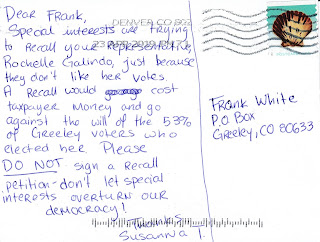 Dear Frank,
DENVER CO 802
Special interests are trying
to recall your representative,
Rochelle Galindo, just because
they don't like her votes.
A recall would cost
taxpayer money and go
against the will of the 53%
of Greeley voters who
elected her. Please
DO NOT sign a recall
petition - don't let special
interests overturn our
democracy!
Thanks,
Susanna I.
Frank White
P.O Box
Greeley, CO 80633